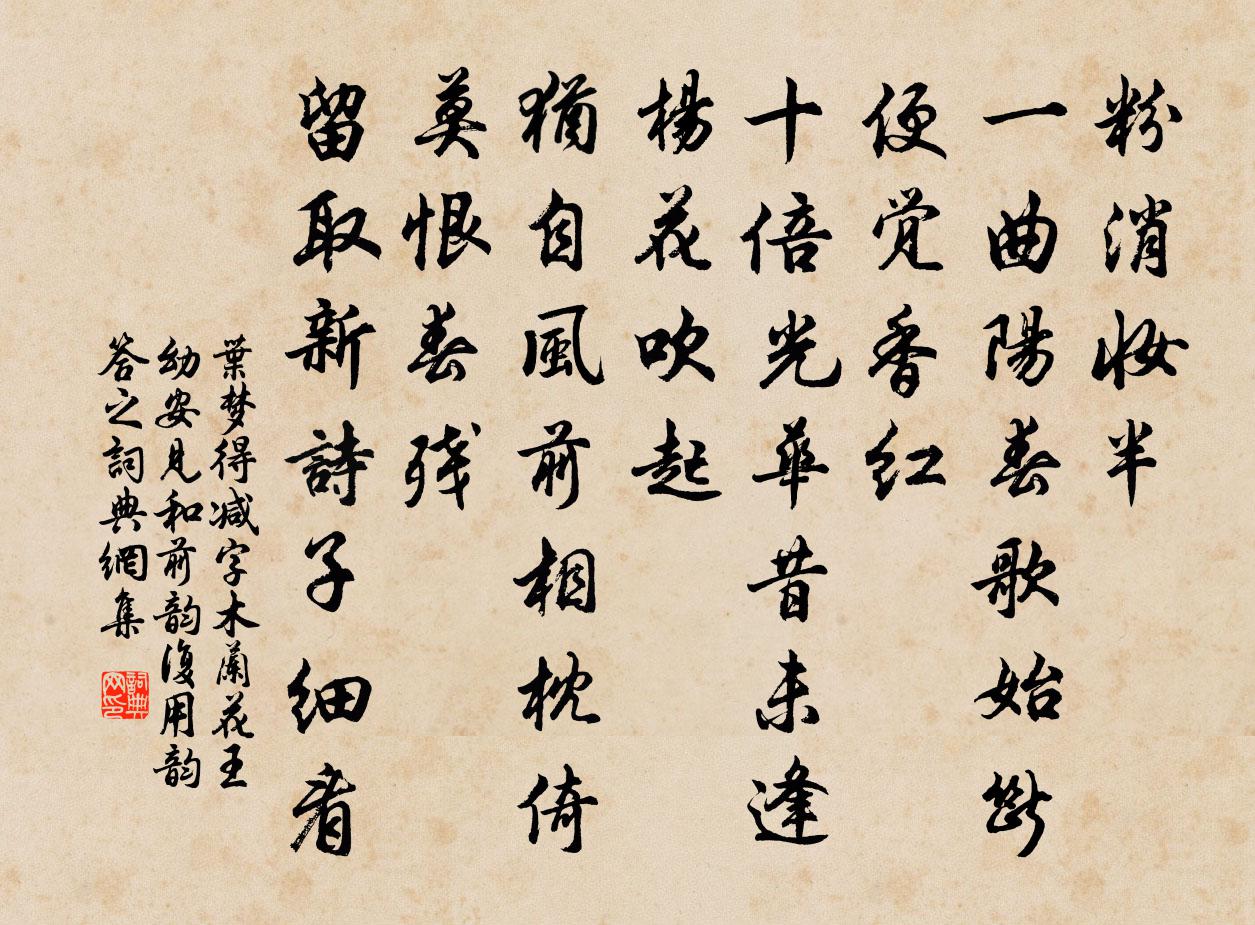 粉消妆半
一曲陽春歌始断
便觉香红
十倍光華昔未逢
楊花吹起
猶自風前相枕倚
莫恨春残
留取新詩子细看
葉梦得减字木蘭花王
幼安見和前韵復用韵
答之詞典網集
詞典
网印